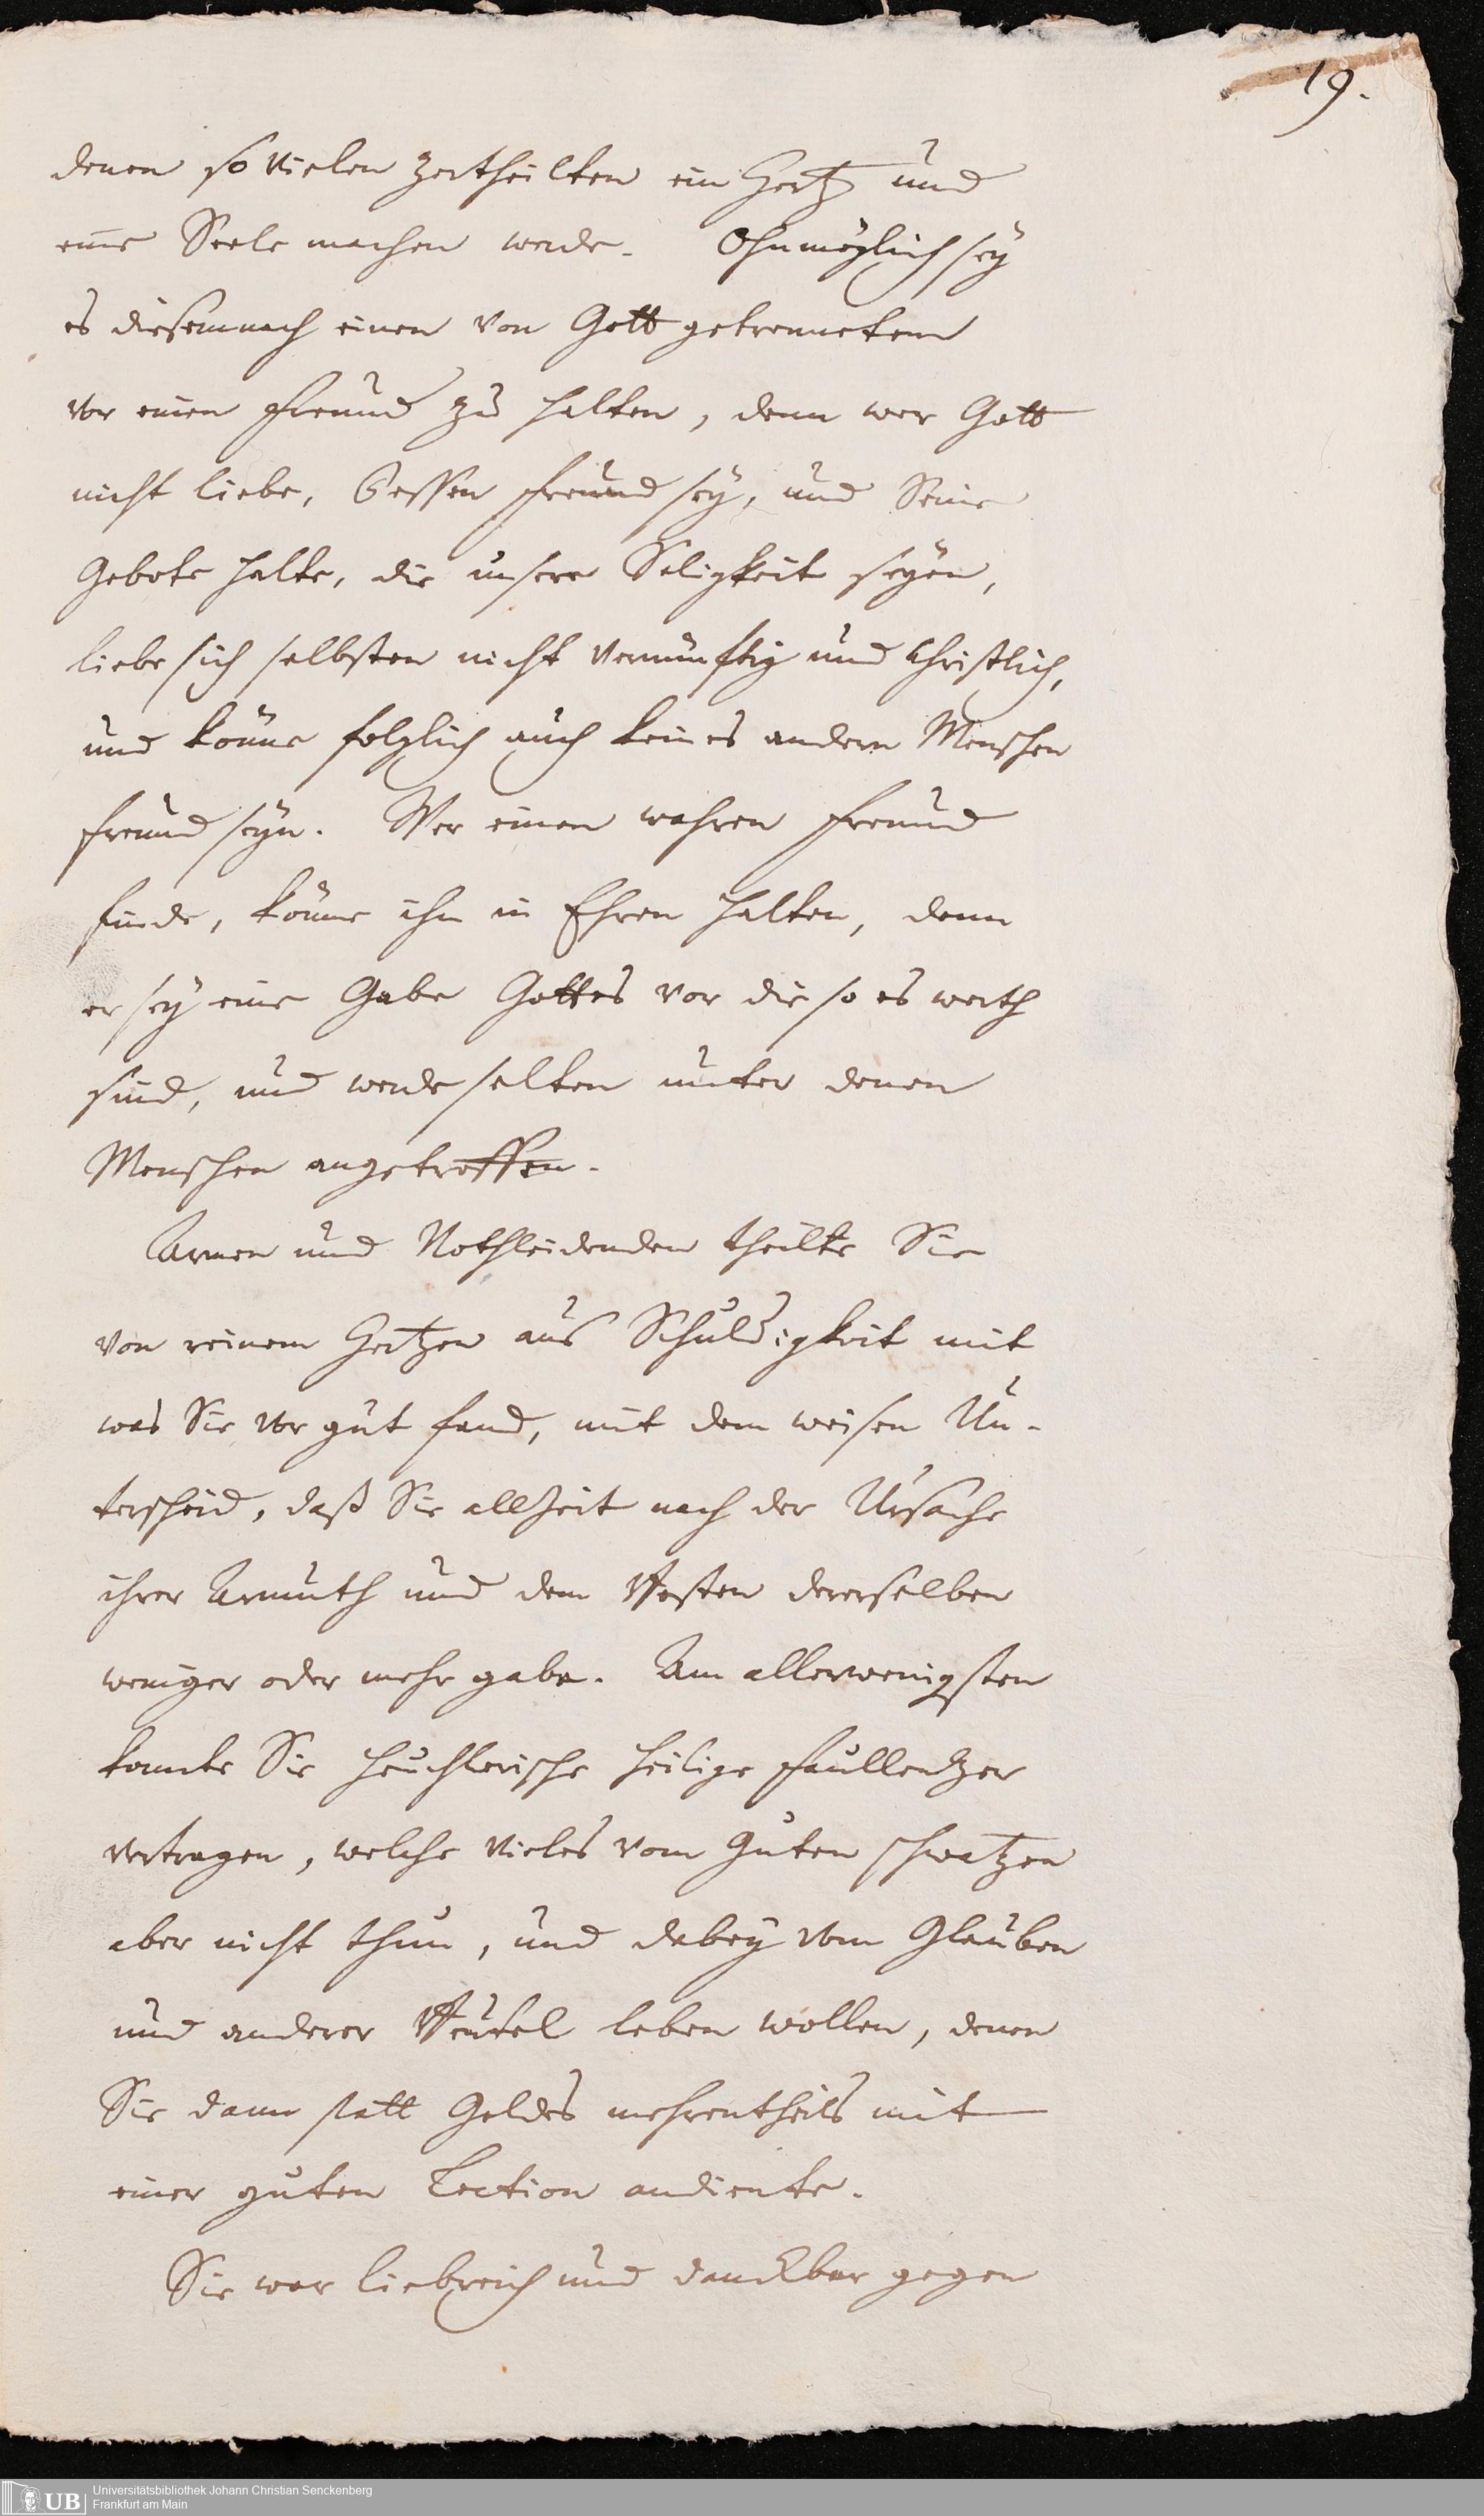 19.
denen so vielen zertheilten ein Hertz und
eine Seele machen werde. Ohnmöglich sey
es diesemnach einen von Gott getrenneten
vor einen Freund zu halten, denn wer Gott
nicht liebe, Dessen Freund sey, und Seine
Gebote halte, die unsere Seligkeit seyen,
liebe sich selbsten nicht vernünftig und Christlich,
und könne folglich auch keines andern Menschen
Freund seyn. Wer einen wahren Freund
finde, könne ihn in Ehren halten, denn
er sey eine Gabe Gottes vor die so es werth
sind, und werde selten unter denen
Menschen angetroffen.
Armen und Nothleidenden theilte Sie
von reinem Hertzen aus Schuldigkeit mit
was Sie vor gut fand, mit dem weisen Un-
terscheid, daß Sie allzeit nach der Ursache
ihrer Armuth und dem Besten dererselben
weniger oder mehr gabe. Am allerwenigsten
konnte Sie heuchlerische heilige Faullentzer
vertragen, welche vieles vom Guten schwatzen
aber nicht thun, und dabey vom Glauben
und anderer Beutel leben wollen, denen
Sie dann statt Geldes mehrentheils mit
einer guten Lection andiente.
Sie war liebreich und danckbar gegen
Universitätsbibliothek Johann Christian Senckenberg
Frankfurt am Main
UB